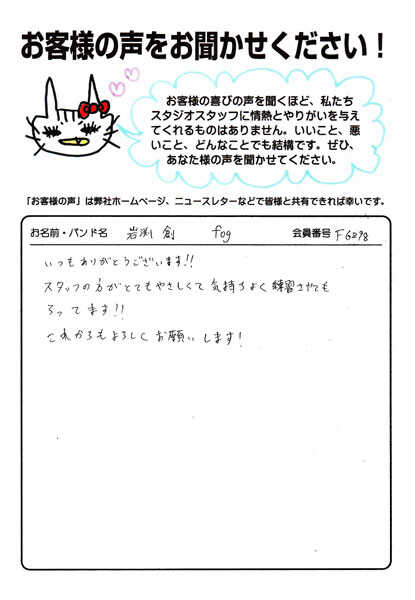 お客様の声をお聞かせください！
お客様の喜びの声を聞くほど、私たち
スタジオスタッフに情熱とやりがいを与え
てくれるものはありません。いいこと、悪
いこと、どんなことでも結構です。ぜひ、
あなた様の声を聞かせてください。
「お客様の声」は弊社ホームページ、ニュースレターなどで皆様と共有できれば幸いです。
お名前・バンド名 岩渕 創 fog 会員番号 F6298
いつもありがとうございます!!
スタッフの方がとてもやさしくて気持ちよく練習させても
らってます!!
これからもよろしくお願いします!